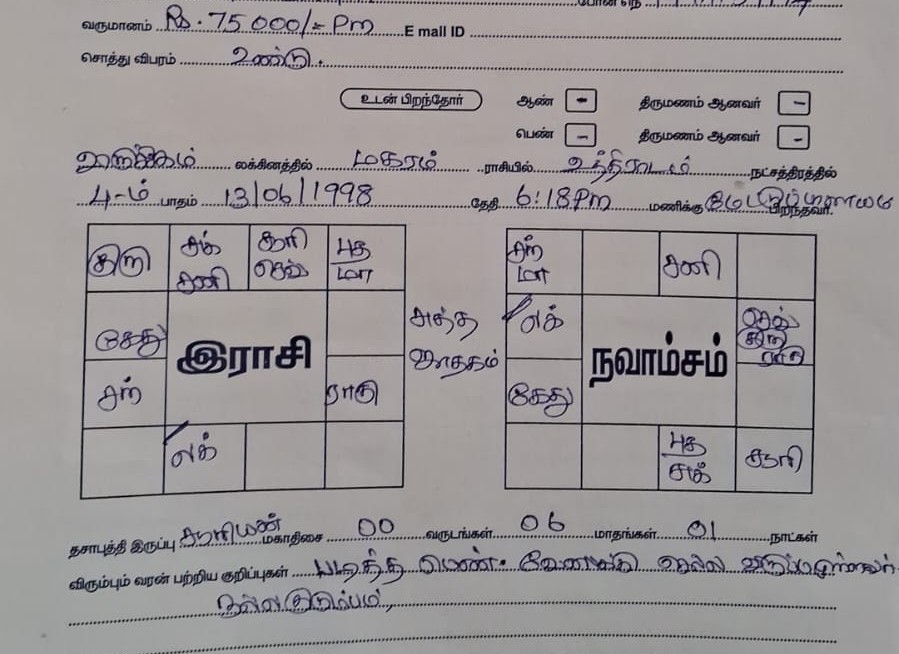 வருமானம் Rs. 75000/= Pm E mail ID
சொத்து விபரம் உண்டு.
உடன் பிறந்தோர் ஆண் - திருமணம் ஆனவர் -
பெண் - திருமணம் ஆனவர் -
லக்கினத்தில் மகரம் ராசியில் உத்திராடம் நட்சத்திரத்தில்
4-ம் பாதம் 13/06/1998 தேதி 6:18Pm மணிக்கு பிறந்தவர்.
குரு சுக் சனி சூரி செவ் புத மா
கேது
இராசி
சந்
ராகு
லக்
சுத்த
ஜாதகம்
சந் மா சனி
லக் செவ் குரு ராகு
நவாம்சம்
கேது
புத சுக் சூரி
தசாபுத்தி இருப்பு சூரியன் மகாதிசை 00 வருடங்கள் 06 மாதங்கள் 01 நாட்கள்
விரும்பும் வரன் பற்றிய குறிப்புகள் படித்த பெண். வேலைக்கு செல்ல
நல்ல குடும்பம்,